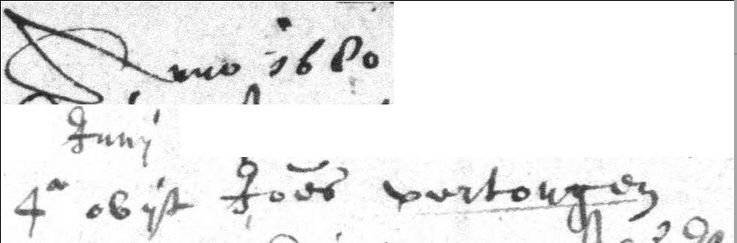 Anno 1680
Junij
4a obijt Joēs vertongen